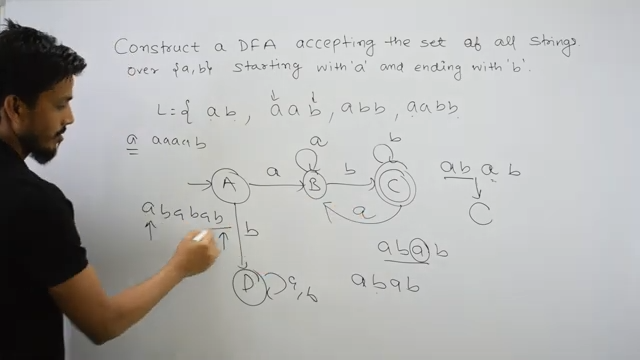 Construct a DFA accepting the set of all strings
over {a,b} starting with 'a' and ending with 'b'.
L={ ab, aab, abb, aabb
a aaaab
a
b
A a B b C
ab a b
C
a
ababab
b
abab
abab
D a,b